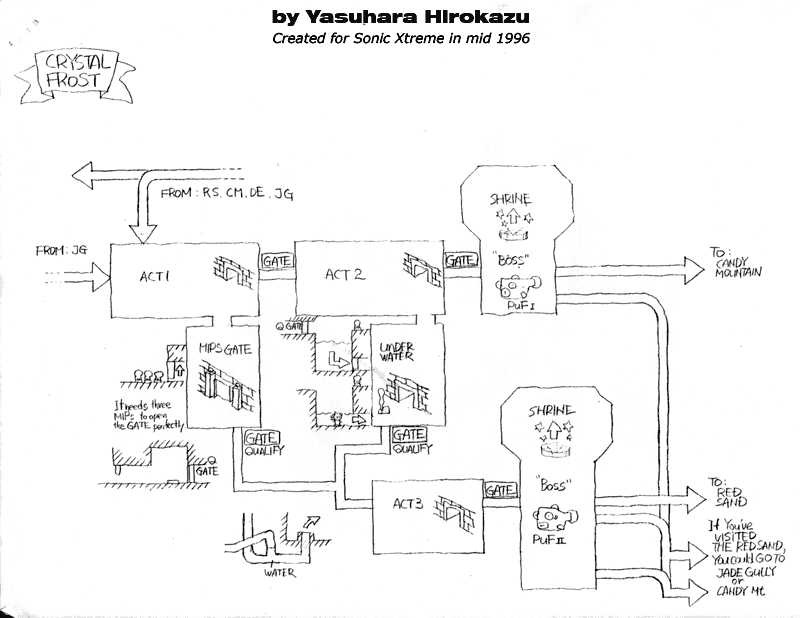 by Yasuhara Hirokazu
Created for Sonic Xtreme in mid 1996
CRYSTAL
FROST
FROM: RS. CM. DE. JG
FROM: JG
ACT1
GATE
ACT 2
GATE
SHRINE
"BOSS"
PUF I
TO:
CANDY
MOUNTAIN
MIPS GATE
GATE
UNDER
WATER
It needs three
MIPs to open
the GATE perfectly
GATE
QUALIFY
GATE
QUALIFY
GATE
ACT3
GATE
SHRINE
"BOSS"
PUF II
TO:
RED
SAND
If You've
VISITED
THE REDSAND,
You could GO TO
JADE GULLY
or
CANDY Mt
WATER